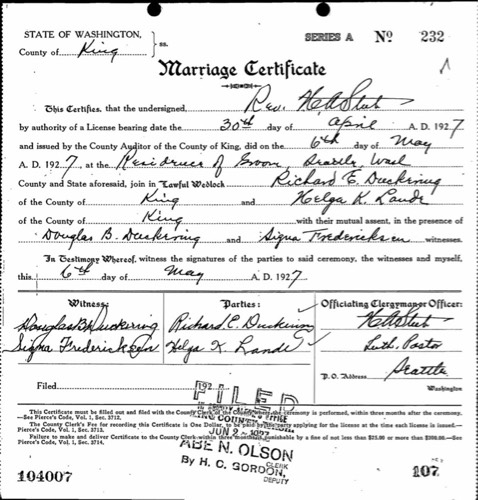 STATE OF WASHINGTON,
County of King ss.
SERIES A No 232
Marriage Certificate
This Certifies, that the undersigned, Rev. H A Stub
by authority of a License bearing date the 30th day of April A. D. 1927
and issued by the County Auditor of the County of King, did on the 6th day of May
A. D. 1927, at the Residence of Groom, Seattle, Wash
County and State aforesaid, join in Lawful Wedlock Richard E. Duckering
of the County of King and Helga K. Lande
of the County of King with their mutual assent, in the presence of
Douglas B. Duckering and Signa Fredericksen witnesses.
In Testimony Whereof, witness the signatures of the parties to said ceremony, the witnesses and myself,
this 6th day of May A. D. 1927
Witness: Parties: Officiating Clergyman or Officer:
Douglas B Duckering Richard E. Duckering H A Stub
Signa Fredericksen Helga K. Lande Luth. Pastor
P. O. Address Seattle
Washington
Filed 192
FILED
This Certificate must be filled out and filed with the County Clerk of the County where the ceremony is performed, within three months after the ceremony.
—See Pierce's Code, Vol. 1, Sec. 3712.
The County Clerk's Fee for recording this Certificate is One Dollar, to be paid by the party applying for the license at the time each license is issued.—
Pierce's Code, Vol. 1, Sec. 3713.
Failure to make and deliver Certificate to the County Clerk within three months is punishable by a fine of not less than $25.00 or more than $300.00.—See
Pierce's Code, Vol. 1, Sec. 3714.
JUN 2 - 1927
ABE N. OLSON
CLERK
By H. C. GORDON,
DEPUTY
104007
107